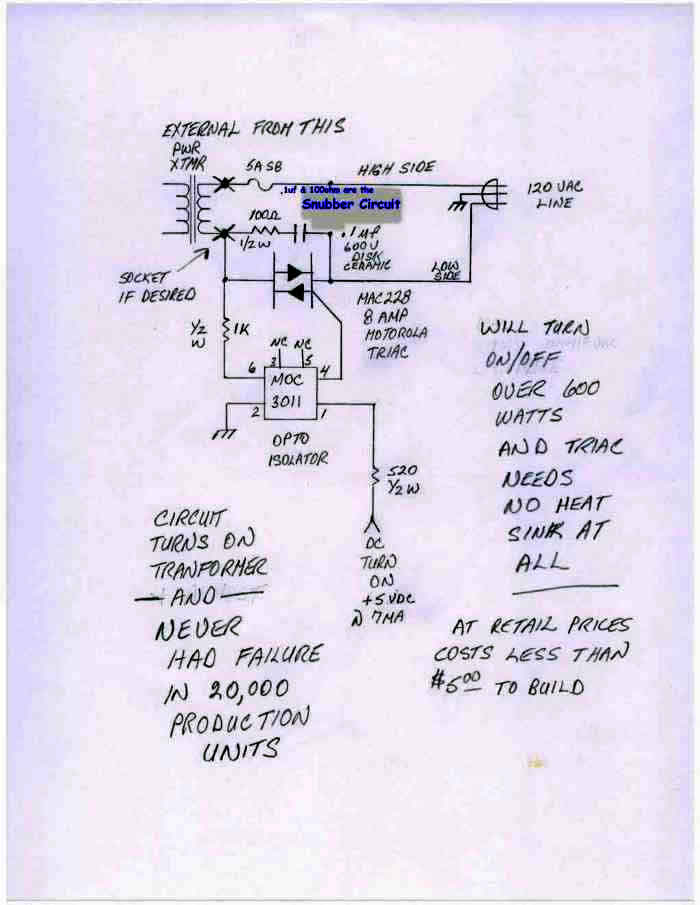 EXTERNAL FROM THIS
PWR
XTMR
5A SB
HIGH SIDE
.1uf & 100ohm are the
Snubber Circuit
120 VAC
LINE
100Ω
1/2 W
.1 MF
600 V
DISK
CERAMIC
LOW
SIDE
SOCKET
IF DESIRED
MAC228
8 AMP
MOTOROLA
TRIAC
1/2
W
1K
NC NC
6 3 5 4
MOC
3011
2 1
OPTO
ISOLATOR
520
1/2 W
DC
TURN
ON
+5 VDC
@ 7MA
WILL TURN
ON/OFF
OVER 600
WATTS
AND TRIAC
NEEDS
NO HEAT
SINK AT
ALL
CIRCUIT
TURNS ON
TRANFORMER
— AND —
NEVER
HAD FAILURE
IN 20,000
PRODUCTION
UNITS
AT RETAIL PRICES
COSTS LESS THAN
$5.00 TO BUILD